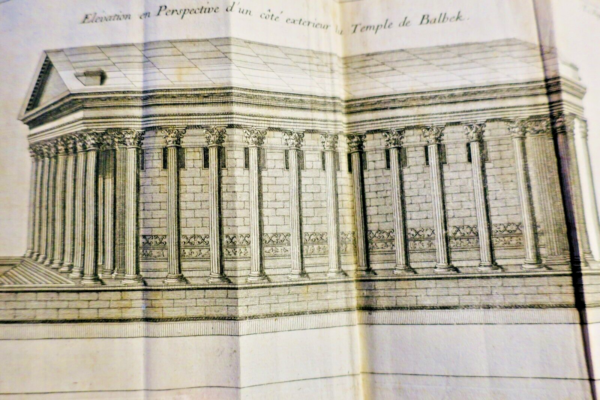 Elevation en Perspective d'un côté exterieur du Temple de Balbek.